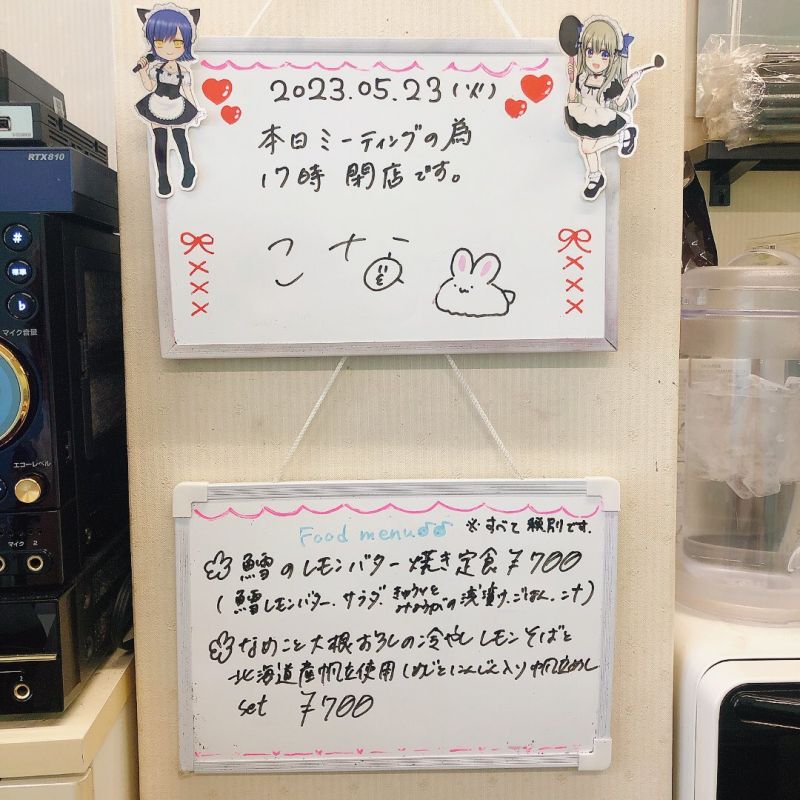 2023.05.23(火)
本日ミーティングの為
17時 閉店です。
こなつ
RTX810
#
標準
b
マイク音量
エコーレベル
マイク 2
2
Food menu♪♪ ※すべて税別です.
鱈のレモンバター焼き定食 ¥700
(鱈レモンバター.サラダ.きゅうりとみょうがの浅漬け.ごはん.
なめこと大根おろしの冷やしレモンそばと
北海道産帆立使用 しめじとにんじん入り帆立めし
set ¥700